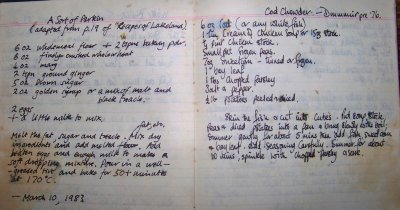 A Sort of Parkin
(adapted from p.19 of "Recipes of Lakeland")
6 oz wholemeal flour + 2 tspns baking pdr.
6 oz finely crushed wholewheat
6 oz marg
2 tspn ground ginger
6 oz brown sugar
2 oz golden syrup or a mix of malt and
black treacle.
2 eggs
+ a little milk to mix.
fat, etc.
Melt the fat sugar and treacle. Mix dry
ingredients and add melted flour. Add
beaten eggs and enough milk to make a
soft dropping mixture. Pour in a well-
greased tin and bake for 50+ minutes
at 170°C.
— March 10, 1983
Cod Chowder. —
6 oz Cod (or any white fish)
1 tin Cream of Chicken Soup or
½ pint Chicken stock.
Small pkt frozen peas.
7oz Sweetcorn - tinned or frozen.
1 bay leaf
1 tbs. Chopped Parsley
Salt & pepper.
½ lb potatoes peeled & diced.
Skin the fish & cut into cubes. Put soup, stock,
peas & diced potatoes into a pan & bring slowly to the boil;
Simmer gently for about 5 mins then add fish, sweetcorn
& bay leaf. Add seasoning carefully. Simmer for about
10 mins, sprinkle with chopped parsley & serve.